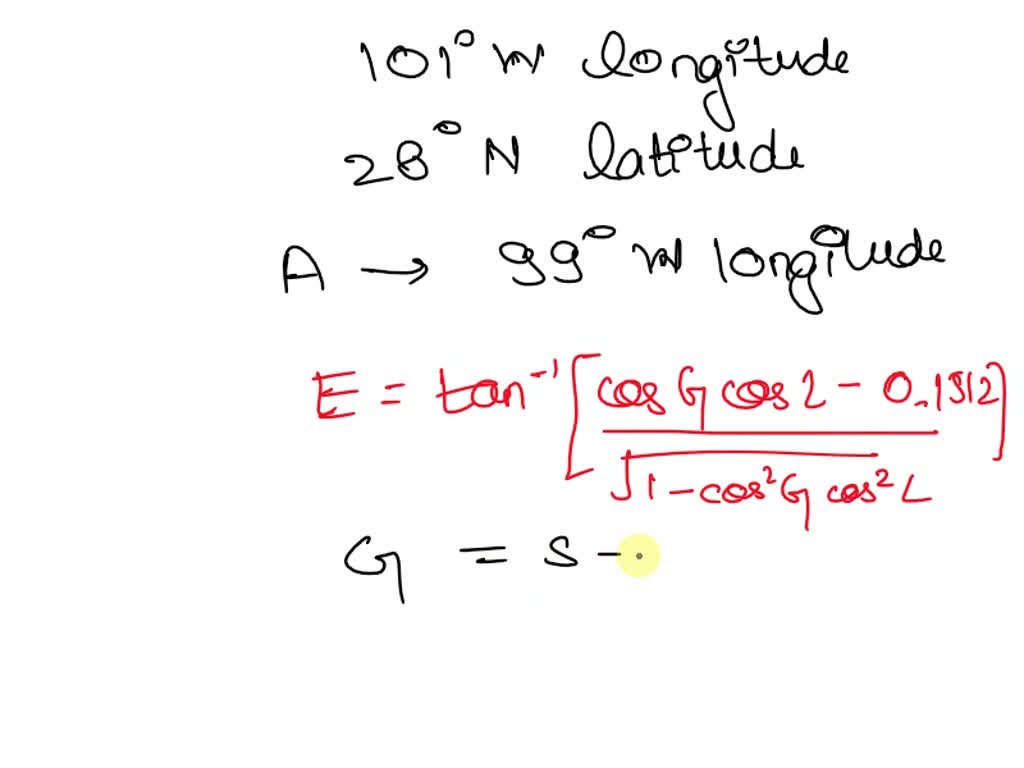 101° W longitude
28° N latitude
A → 99° W longitude
E = tan⁻¹ [cos G cos L - 0.1512]
√1 - cos² G cos² L
G = S -